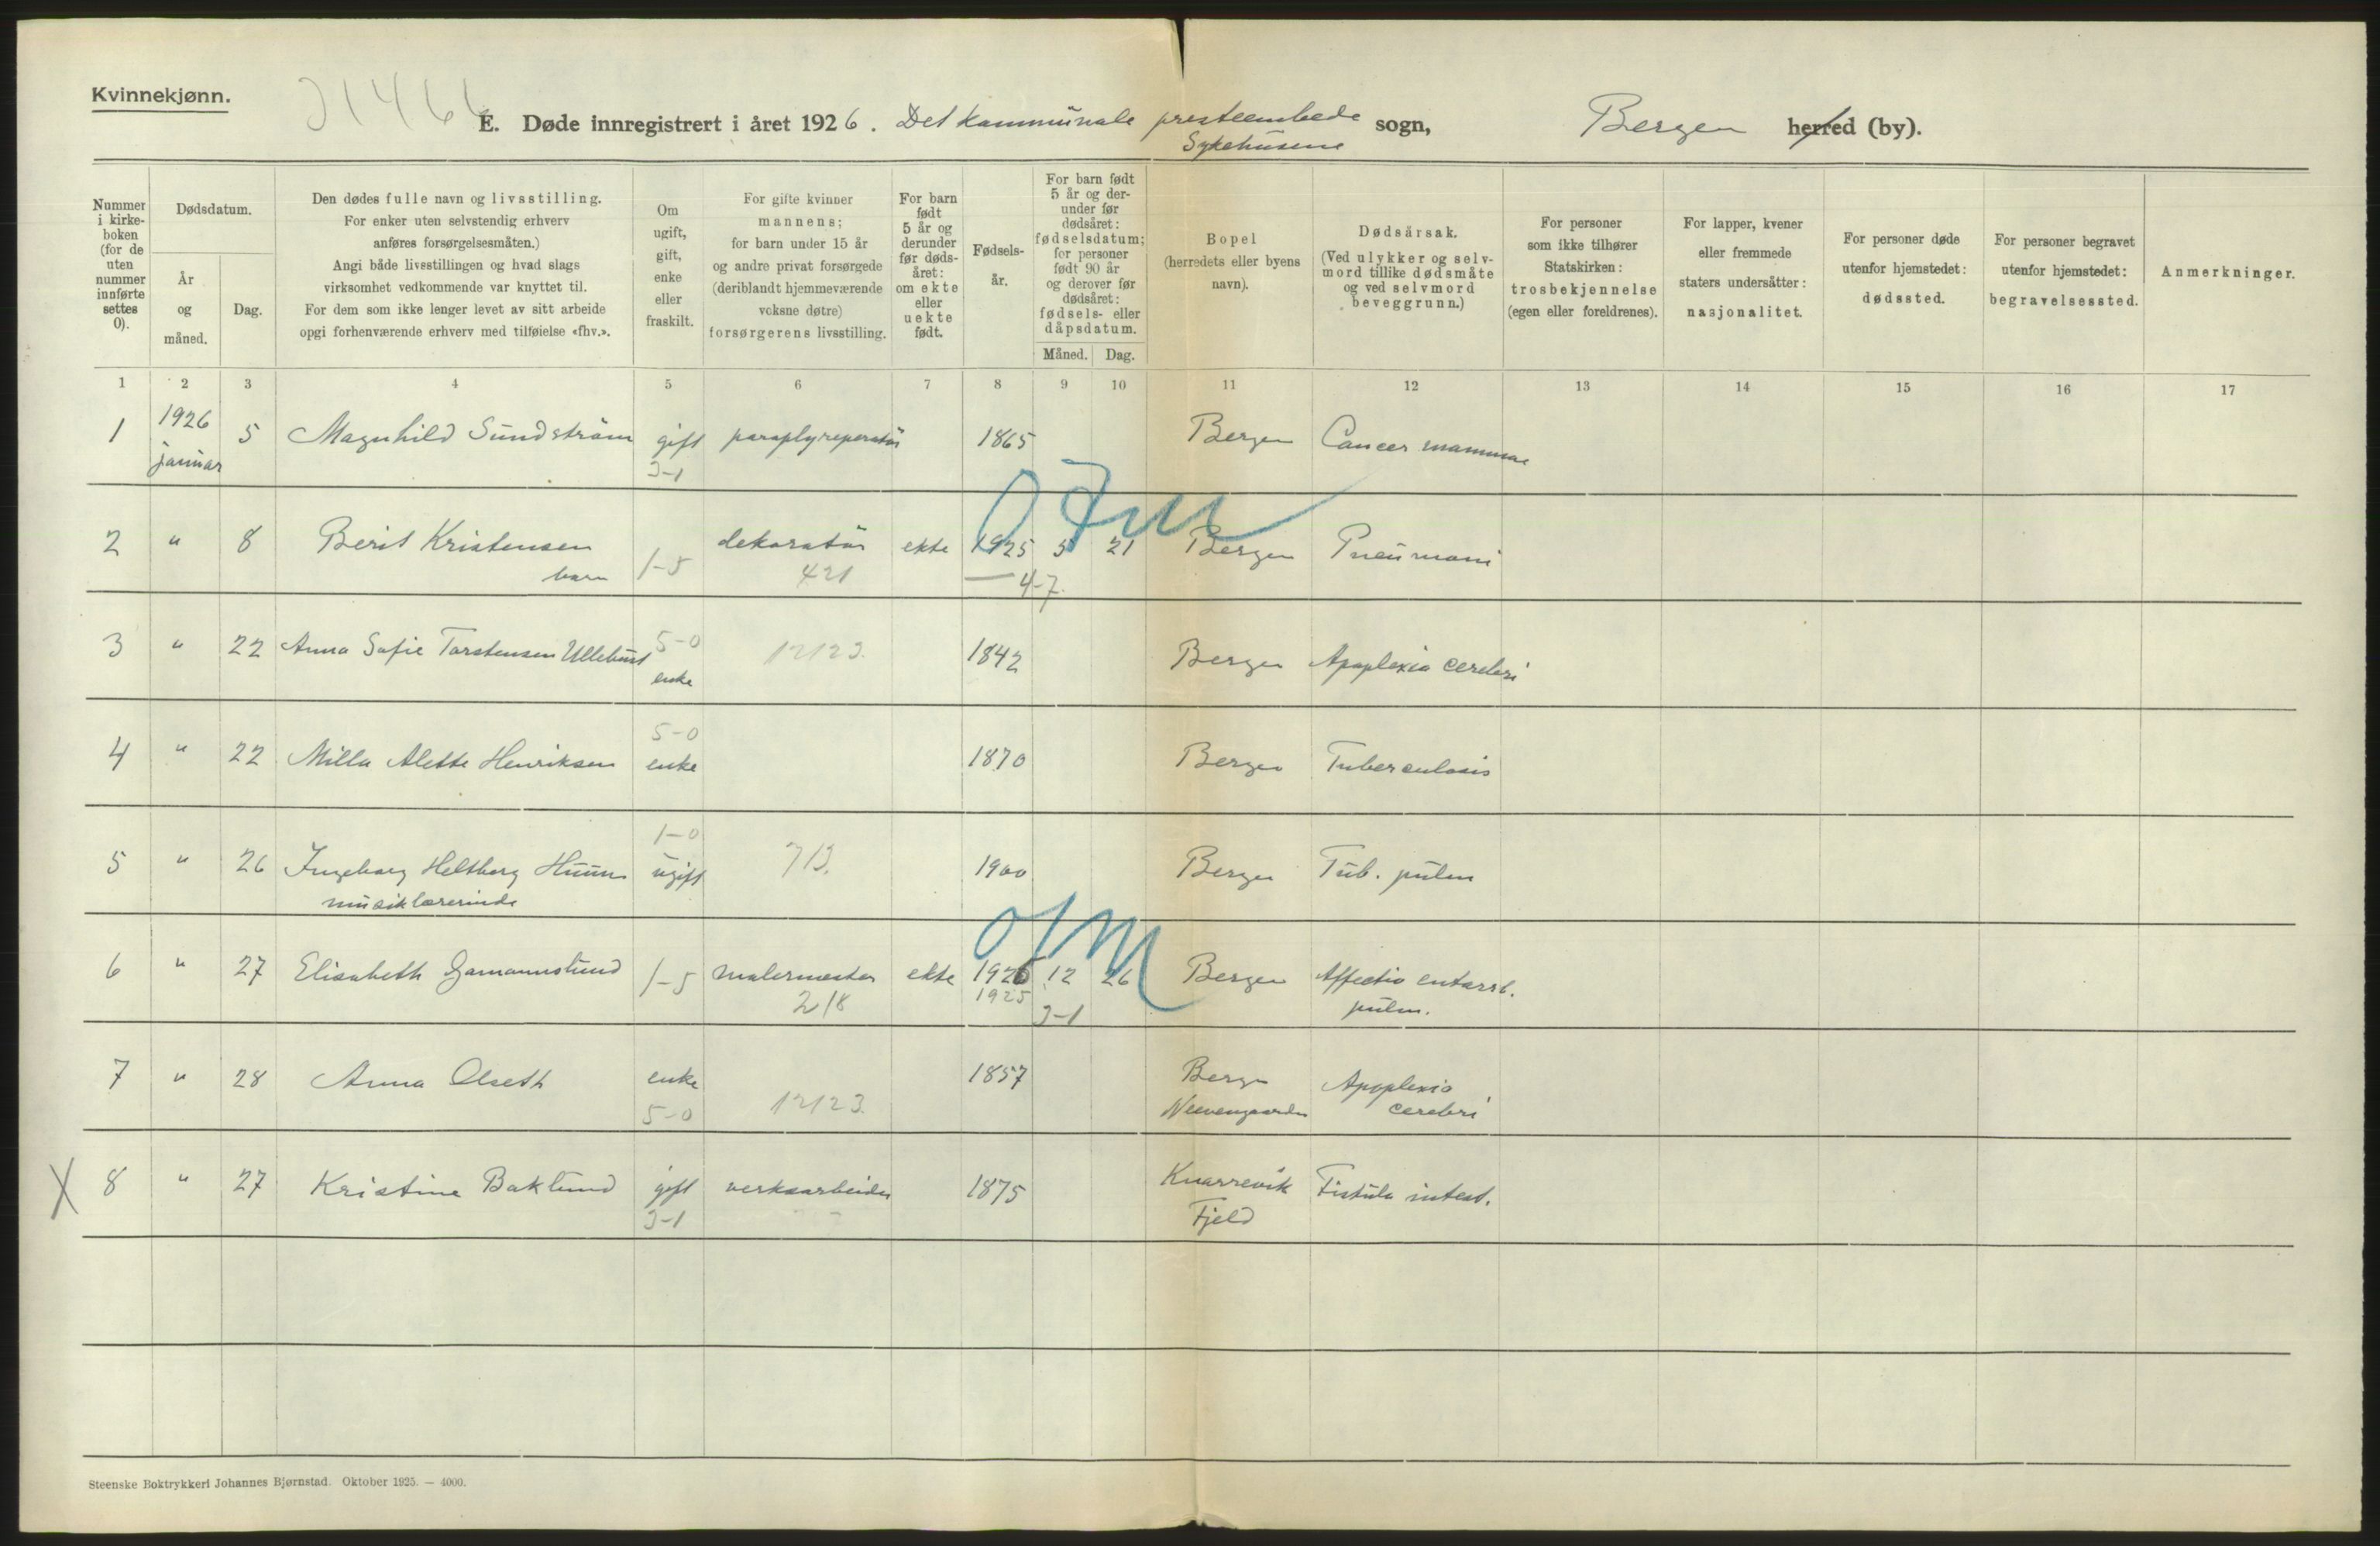 Kvinnekjønn.
E. Døde innregistrert i året 1926. Det kommunale presteembede sogn, Bergen herred (by).
Sykehusene
Nummer i kirke-boken (for de uten nummer innførte settes 0).
Dødsdatum.
År og måned.
Dag.
Den dødes fulle navn og livsstilling.
For enker uten selvstendig erhverv
anføres forsørgelsesmåten.)
Angi både livsstillingen og hvad slags
virksomhet vedkommende var knyttet til.
For dem som ikke lenger levet av sitt arbeide
opgi forhenværende erhverv med tilføielse «fhv.».
Om ugift, gift, enke eller fraskilt.
For gifte kvinner
mannens;
for barn under 15 år
og andre privat forsørgede
(deriblandt hjemmeværende
voksne døtre)
forsørgerens livsstilling.
For barn født 5 år og derunder før døds-året: om ekte eller uekte født.
Fødsels-år.
For barn født 5 år og der-under før dødsåret: fødselsdatum; for personer født 90 år og derover før dødsåret: fødsels- eller dåpsdatum.
Måned. Dag.
Bopel
(herredets eller byens
navn).
Dødsårsak.
(Ved ulykker og selv-
mord tillike dødsmåte
og ved selvmord
beveggrunn.)
For personer
som ikke tilhører
Statskirken:
trosbekjennelse
(egen eller foreldrenes).
For lapper, kvener
eller fremmede
staters undersåtter:
nasjonalitet.
For personer døde
utenfor hjemstedet:
dødssted.
For personer begravet
utenfor hjemstedet:
begravelsessted.
Anmerkninger.
1 2 3 4 5 6 7 8 9 10 11 12 13 14 15 16 17
1 1926 januar 5 Magnhild Sundström gift paraplyreperatör 1865 Bergen Cancer mammae
3-1
2 " 8 Berit Kristensen dekoratör ekte 1925 5 21 Bergen Pneumoni
barn 1-5 421 4-7
3 " 22 Anna Sofie Torstensen Ullebust 5-0 12123. 1842 Bergen Apoplexia cerebri
enke
5-0
4 " 22 Milla Alette Henriksen enke 1870 Bergen Tuberculosis
1-0
5 " 26 Ingeborg Heltberg Huun ugift 713. 1900 Bergen Tub. pulm
musiklærerinde
6 " 27 Elisabeth Gamannslund 1-5 malermester ekte 1926 12 26 Bergen Affectio catarrh.
218 1925 3-1 pulm.
7 " 28 Anna Olseth enke 1857 Bergen Apoplexia
5-0 12123. Neevengaarden cerebri
X 8 " 27 Kristine Baklund gift verksarbeider 1875 Knarrevik Fistula intest.
3-1 Fjeld
Steenske Boktrykkeri Johannes Bjørnstad. Oktober 1925. — 4000.